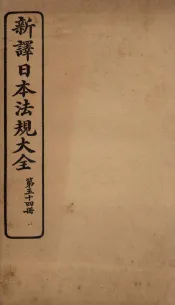 新譯日本法規大全
第五十四冊